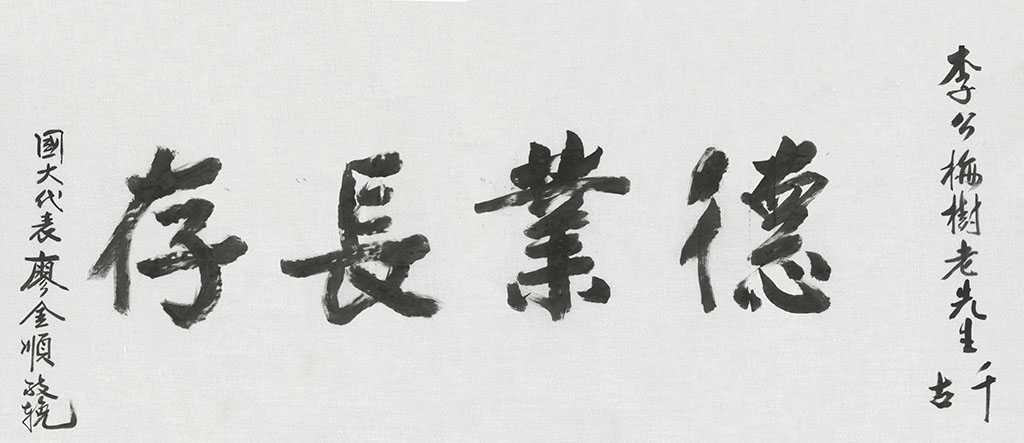 李公梅樹老先生千古
德業長存
國大代表廖金順敬輓